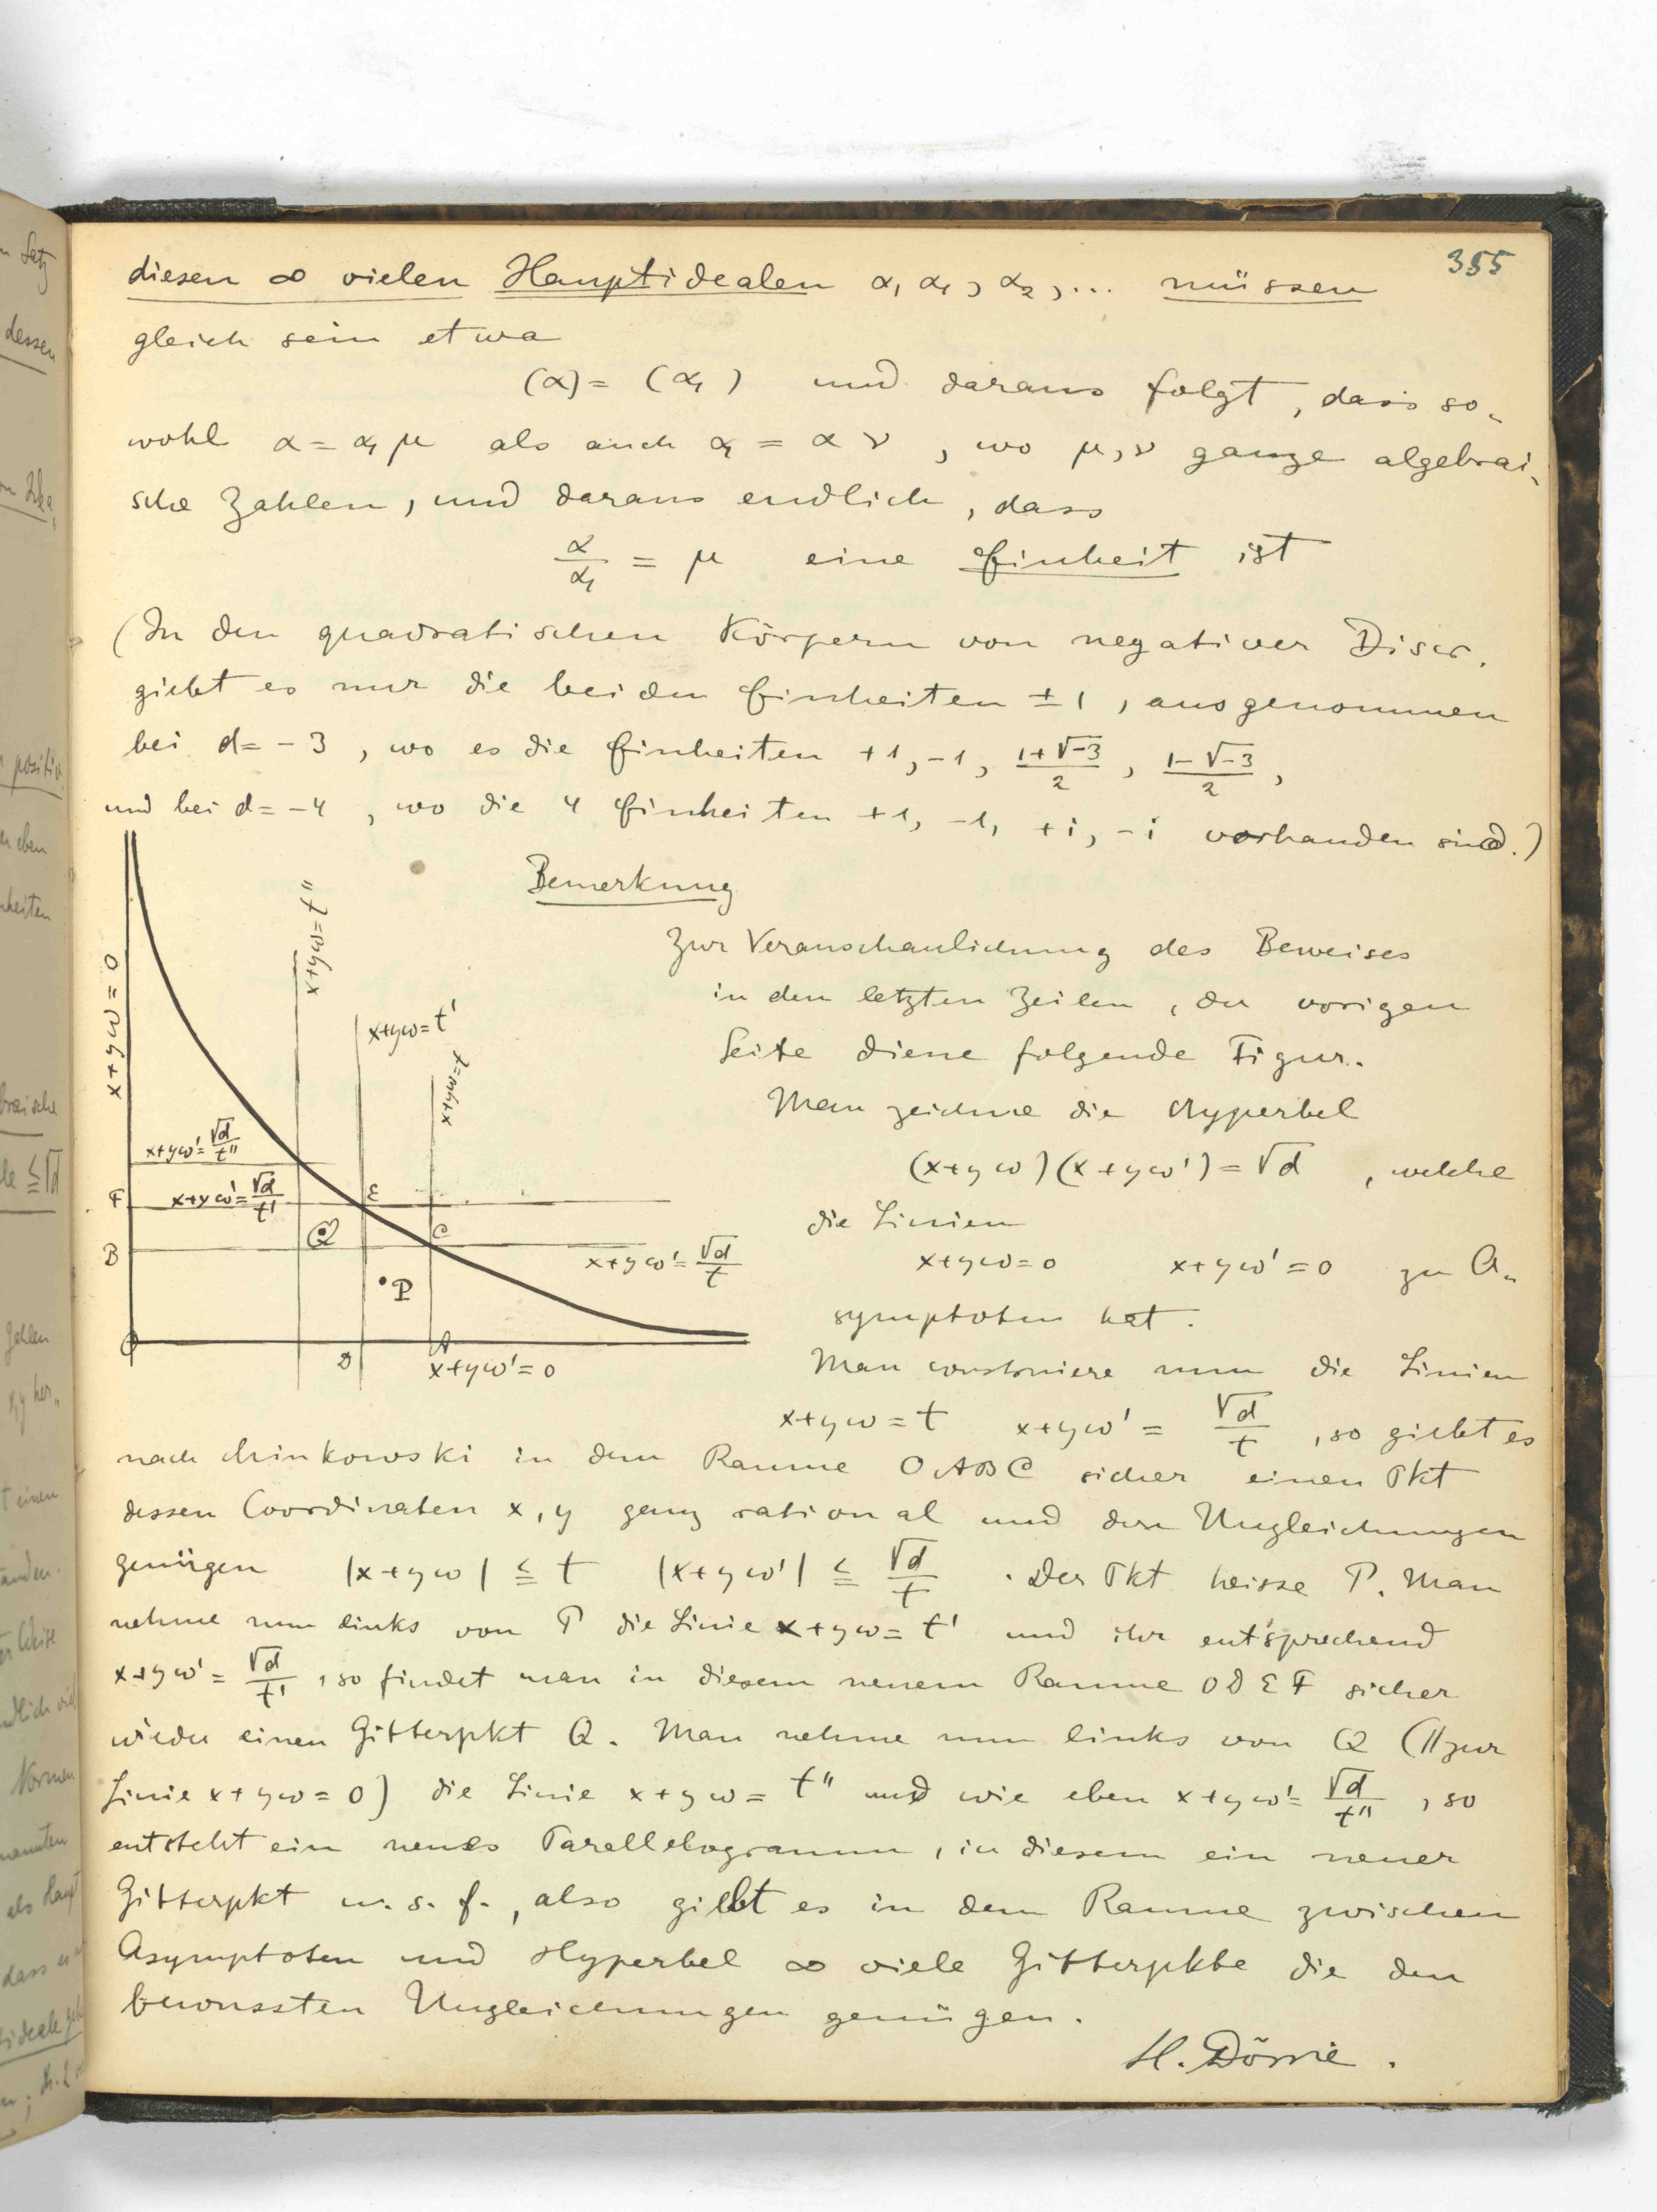 355
diesen ∞ vielen Hauptidealen α, α₁, α₂, ... müssen
gleich sein etwa
(α) = (α₁) und daraus folgt, dass so-
wohl α = α₁μ als auch α₁ = αν, wo μ, ν ganze algebrai-
sche Zahlen, und daraus endlich, dass
α/α₁ = μ eine Einheit ist
(In den quadratischen Körpern von negativer Discr.
giebt es nur die beiden Einheiten ±1, ausgenommen
bei d = -3, wo es die Einheiten +1, -1, (1+√-3)/2, (1-√-3)/2,
und bei d = -4, wo die 4 Einheiten +1, -1, +i, -i vorhanden sind.)
Bemerkung
Zur Veranschaulichung des Beweises
in den letzten Zeilen, der vorigen
Seite diene folgende Figur.
Man zeichne die Hyperbel
(x+yω)(x+yω') = √d, welche
die Linien
x+yω=0 x+yω'=0 zu A-
symptoten hat.
Man construiere nun die Linien
x+yω = t x+yω' = √d/t, so giebt es
x+yω = 0
x+yω = t''
x+yω = t'
x+yω = t
x+yω' = √d/t''
F x+yω' = √d/t' E
Q C
B x+yω' = √d/t
P
O D A
x+yω' = 0
nach Minkowski in dem Raume OABC sicher einen Pkt
dessen Coordinaten x, y ganz rational und den Ungleichungen
genügen |x+yω| ≦ t |x+yω'| ≦ √d/t. Der Pkt heisse P. Man
nehme nun links von P die Linie x+yω = t' und ihr entsprechend
x+yω' = √d/t', so findet man in diesem neuem Raume ODEF sicher
wieder einen Gitterpkt Q. Man nehme nun links von Q (∥ zur
Linie x+yω = 0) die Linie x+yω = t'' und wie eben x+yω' = √d/t'', so
entsteht ein neues Parellelogramm, in diesem ein neuer
Gitterpkt u. s. f., also giebt es in dem Raume zwischen
Asymptoten und Hyperbel ∞ viele Gitterpkte die den
bewussten Ungleichungen genügen.
H. Dörrie.